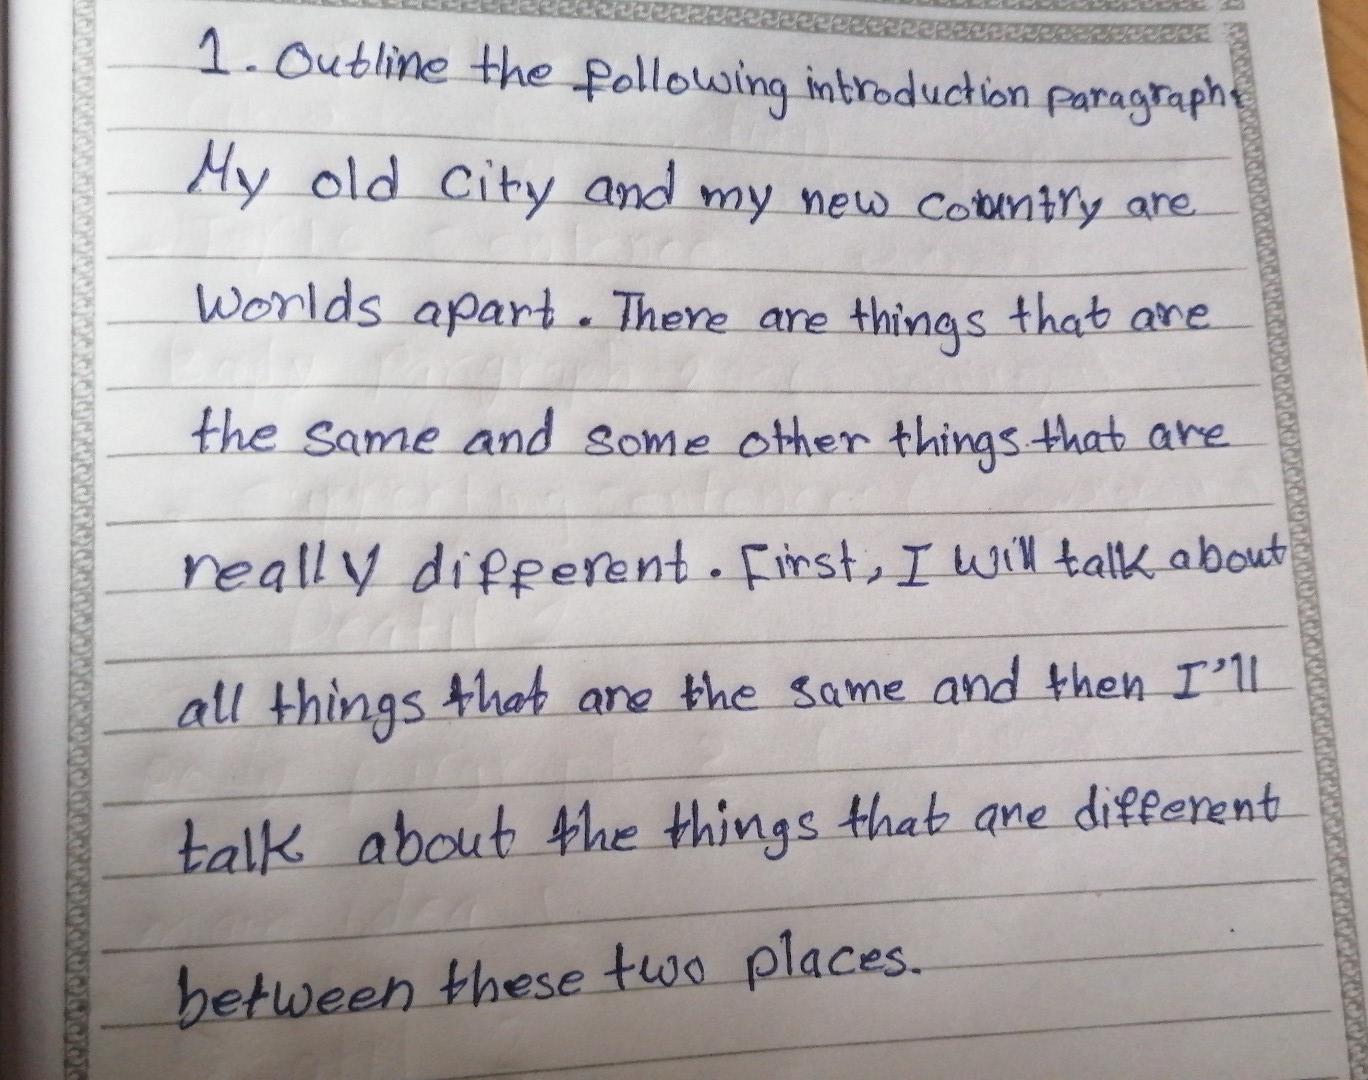 1. Outline the following introduction paragraph.
My old city and my new country are
worlds apart. There are things that are
the same and some other things that are
really different. First, I will talk about
all things that are the same and then I'll
talk about the things that are different
between these two places.